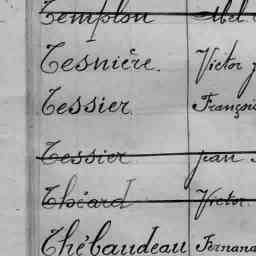 Templon Abel
Tesnière. Victor
Tessier François
Tessier Jean
Théard Victor
Thébaudeau Fernand